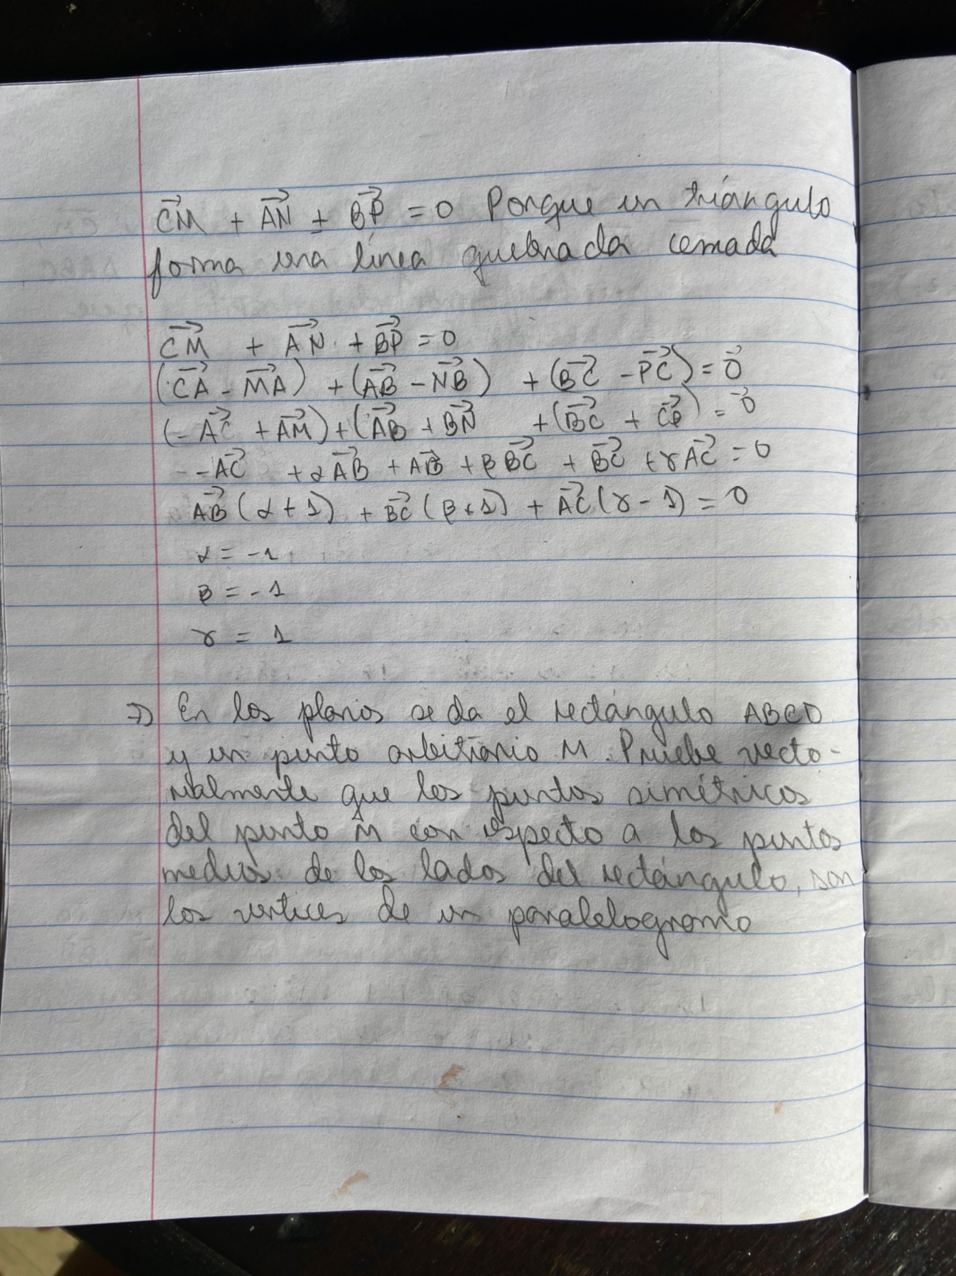 CM⃗ + AN⃗ + BP⃗ = 0 Porque un triángulo
forma una línea quebrada cerrada
CM⃗ + AN⃗ + BP⃗ = 0
(CA⃗ - MA⃗) + (AB⃗ - NB⃗) + (BC⃗ - PC⃗) = 0⃗
(-AC⃗ + AM⃗) + (AB⃗ + BN⃗ + (BC⃗ + CP⃗) = 0⃗
-AC⃗ + αAB⃗ + AB⃗ + βBC⃗ + BC⃗ + γAC⃗ = 0
AB⃗ (α+1) + BC⃗ (β+1) + AC⃗ (γ-1) = 0
α = -1
β = -1
γ = 1
⇒) En los planos se da el rectángulo ABCD
y un punto arbitrario M. Pruebe vecto-
rialmente que los puntos simétricos
del punto M con respecto a los puntos
medios de los lados del rectángulo, son
los vertices de un paralelogramo